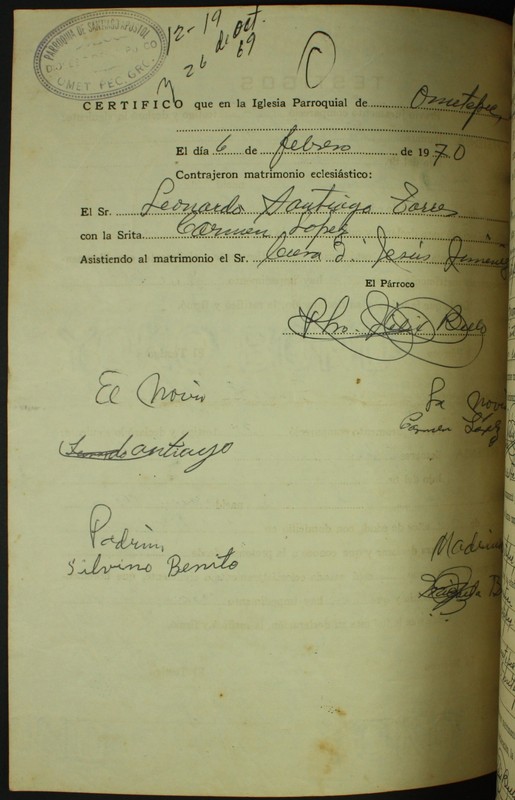 PARROQUIA DE SANTIAGO APOSTOL
OMETEPEC GRO.
12-19
26 de Oct.
69
C
CERTIFICO que en la Iglesia Parroquial de Ometepec,
El día 6 de febrero de 1970
Contrajeron matrimonio eclesiástico:
El Sr. Leonardo Santiago Torres
con la Srita. Carmen López
Asistiendo al matrimonio el Sr. Cura J. Jesús Jiménez
El Párroco
Pbro.
El Novio
La Novi
Santiago
Carmen López
Padrino
Madrina
Silvino Benito
B